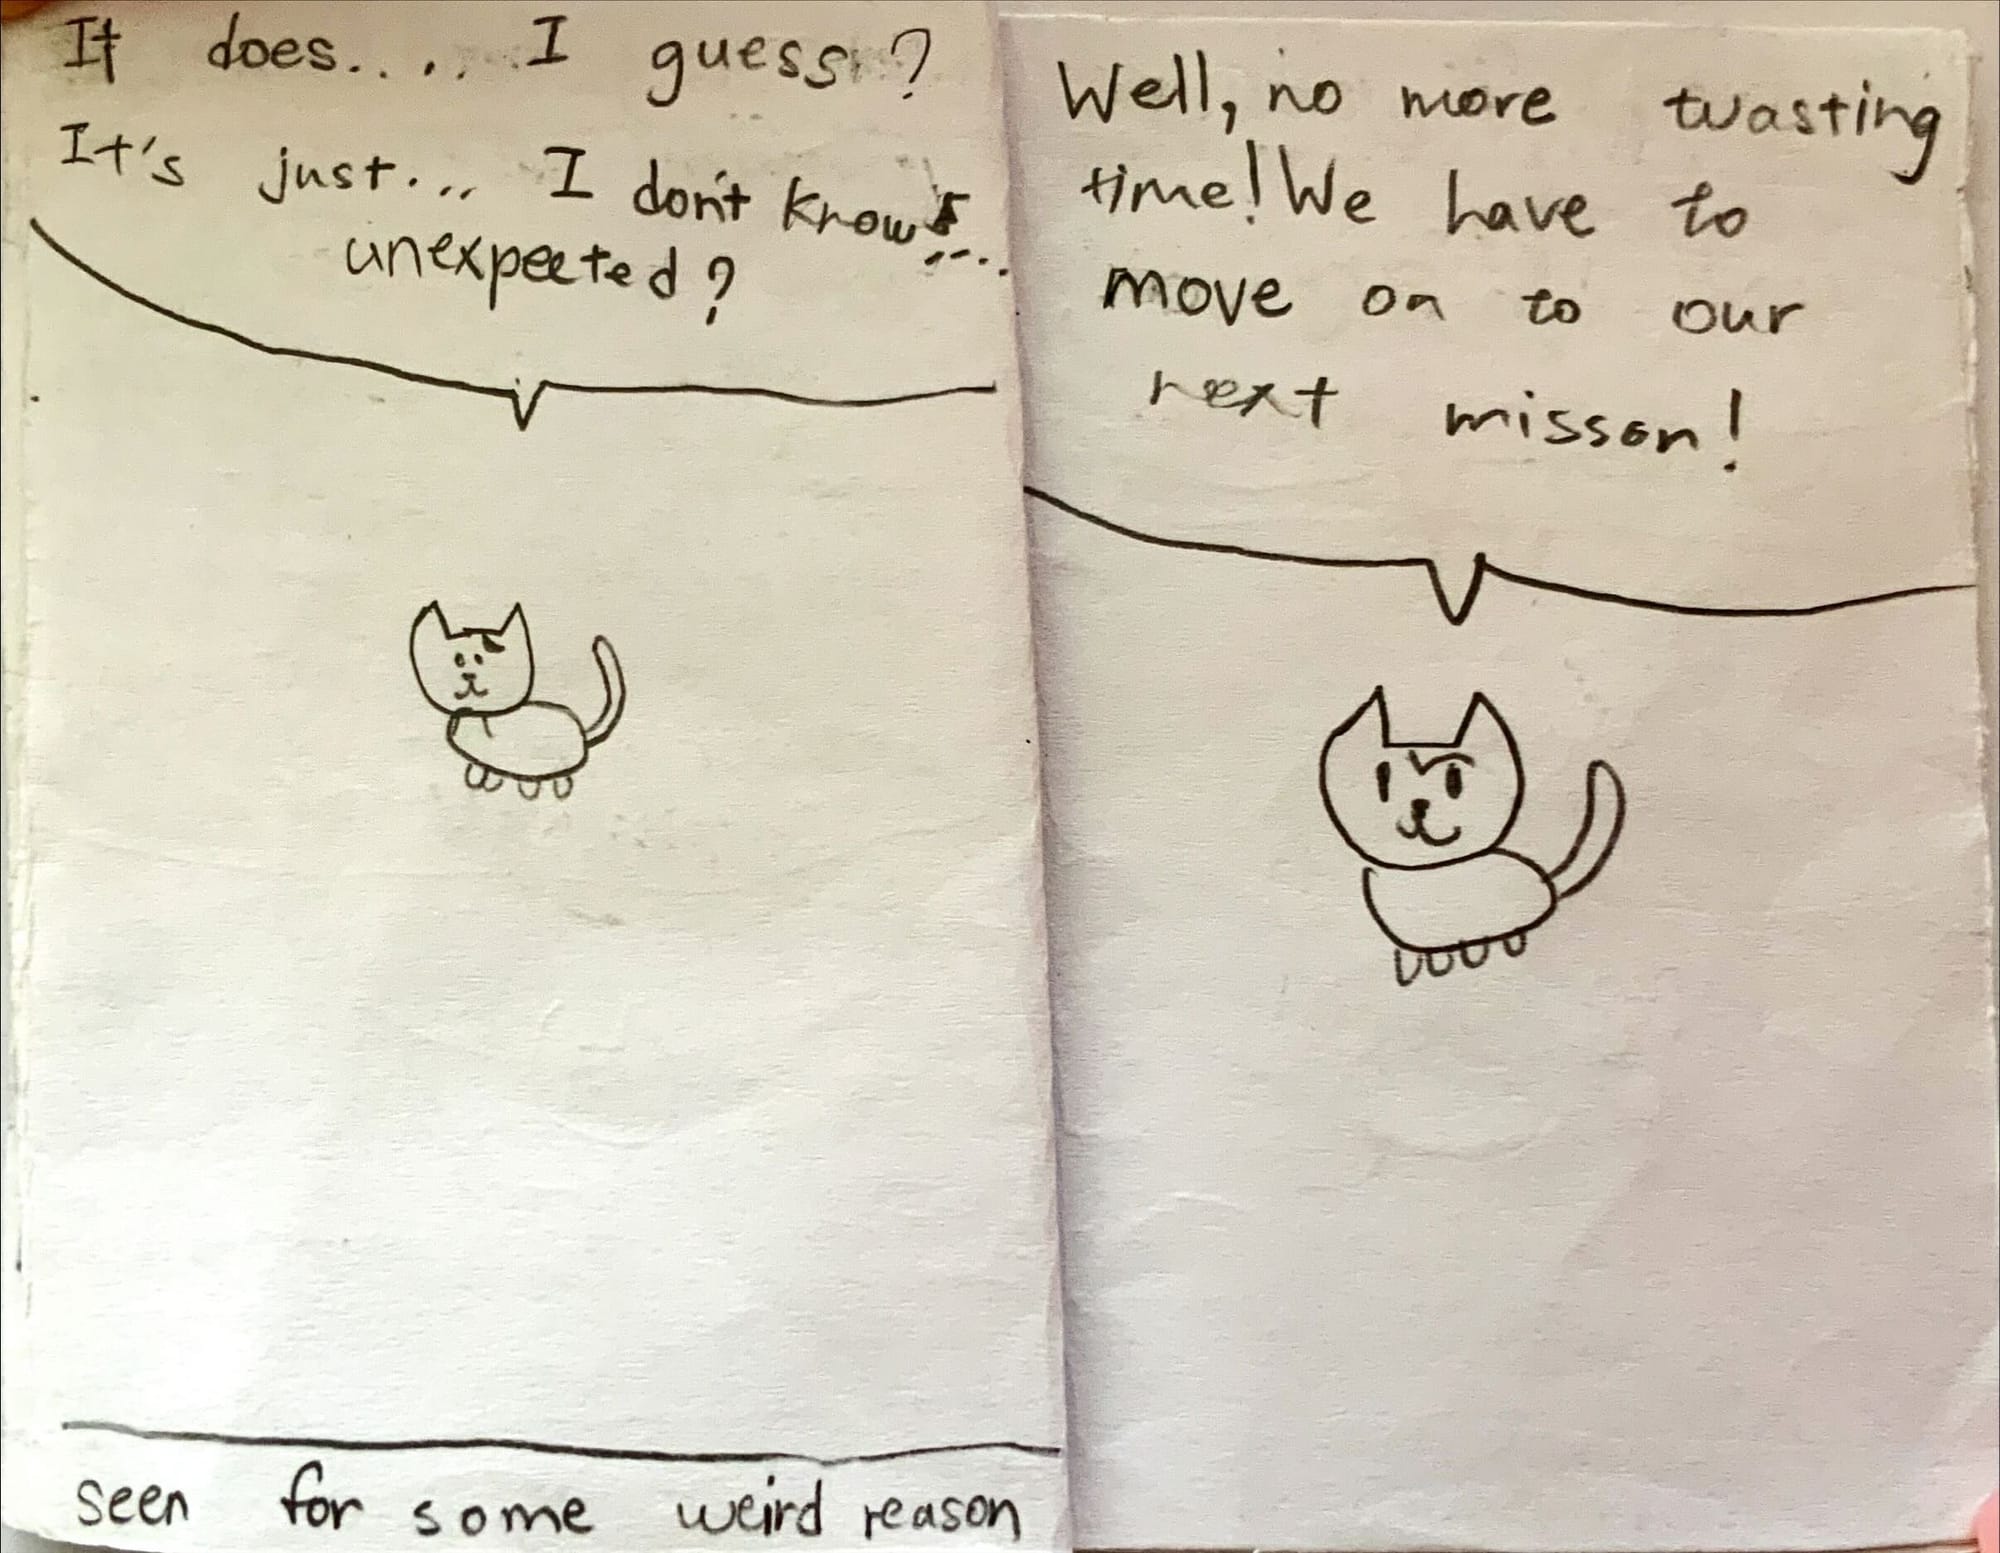 It does.... I guess?
It's just... I don't know....
unexpected?
seen for some weird reason
Well, no more wasting
time! We have to
move on to our
next misson!